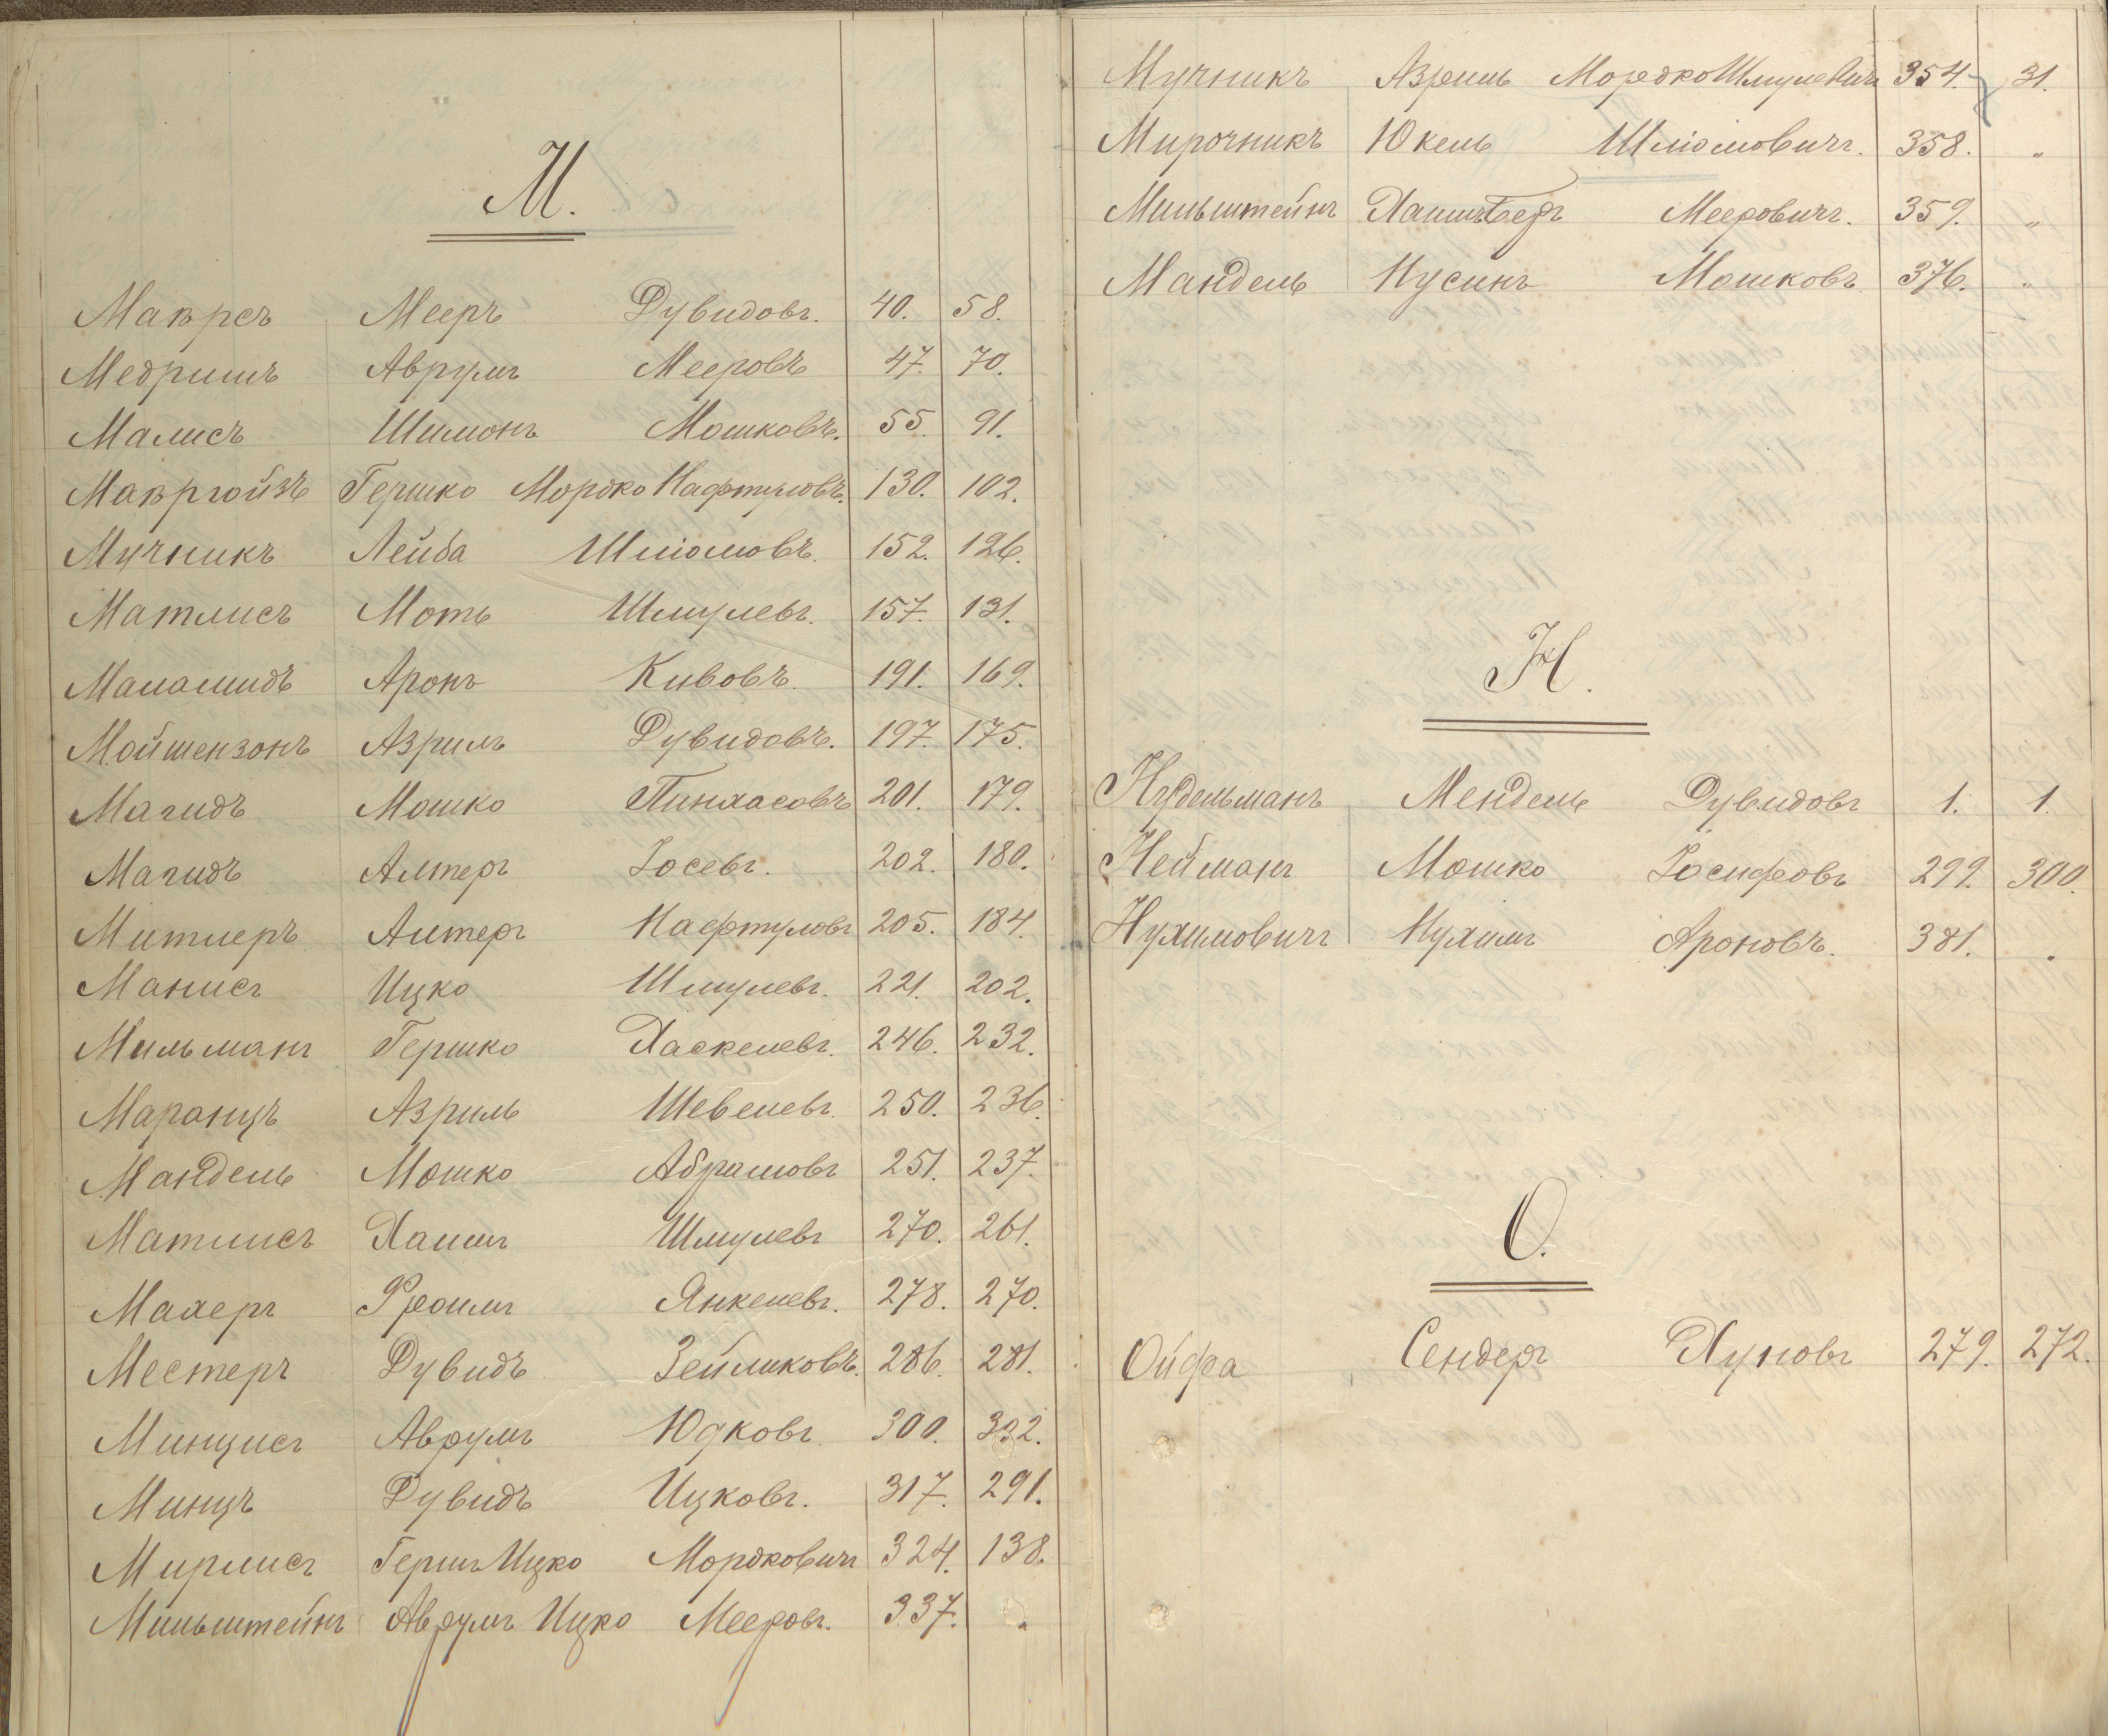 М.
Маврсъ Мееръ Дувидовъ. 40. 58.
Медришъ Аврумъ Мееровъ 47. 70.
Малисъ Шимонъ Мошковъ. 55. 91.
Мавргойзъ Гершко Мордко Нафтуловъ. 130. 102.
Мучникъ Лейба Шліомовъ. 152. 126.
Матлисъ Моть Шмулевъ. 157. 131.
Маламидъ Аронъ Кивовъ. 191. 169.
Мойшензонъ Азриль Дувидовъ. 197. 175.
Магидъ Мошко Пинхасовъ 201. 179.
Магидъ Алтеръ Іосевъ. 202. 180.
Митлеръ Алтеръ Нафтуловъ 205. 184.
Манисъ Ицко Шмулевъ. 221. 202.
Мильманъ Гершко Хаскелевъ. 246. 232.
Маранцъ Азриль Шевелевъ. 250. 236.
Мандель Мошко Абрамовъ 251. 237.
Матлисъ Хаимъ Шмулевъ 270. 261.
Махеръ Фроимъ Янкелевъ. 278. 270.
Местеръ Дувидъ Зейликовъ. 286. 281.
Минцисъ Аврумъ Юдковъ. 300. 332.
Минцъ Дувидъ Ицковъ. 317. 291.
Мирлисъ Герш Ицко Мордковичъ 324. 138.
Мильштейнъ Аврумъ Ицко Мееровъ. 337. "
Мучникъ Азриль Мордко Шмулевичъ 354. 31.
Мирочникъ Юкель Шліомовичъ. 358. "
Мильштейнъ Хаимъ Беръ Мееровичъ. 359. "
Мандель Нусинъ Мошковъ 376. "
Н.
Нудельманъ Мендель Дувидовъ 1. 1.
Нейманъ Мошко Іосифовъ 299. 300.
Нухимовичъ Нухимъ Ароновъ. 381. "
О.
Ойфа Сендеръ Хуновъ 279. 272.